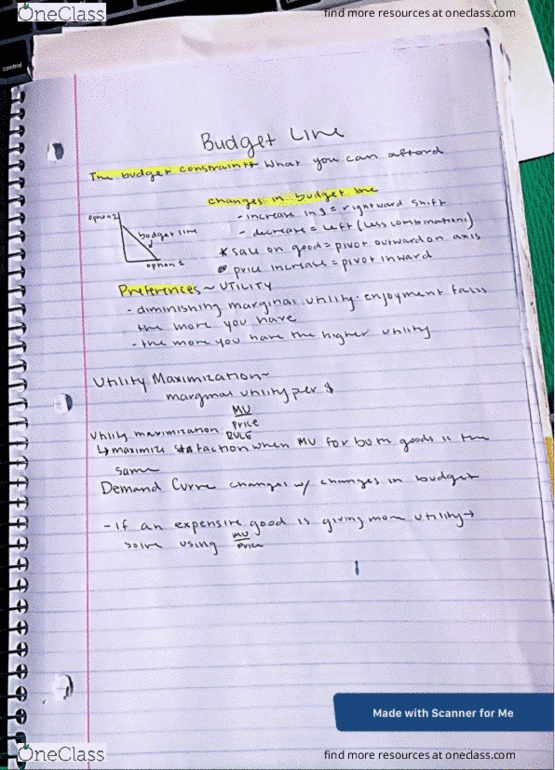 OneClass
find more resources at oneclass.com
control
Budget Line
The budget constraint → What you can afford
changes in budget line
- increase in $ = rightward shift
- decrease = left (less combinations)
* sale on good = pivot outward on axis
price increase = pivot inward
option 2
budget line
option 1
Preferences ~ UTILITY
- diminishing marginal utility - enjoyment falls
the more you have
- the more you have the higher utility
Utility Maximization ~
marginal utility per $
MU
Price
Utility maximization RULE
↳ maximize when MU for both goods is the
same
Demand Curve changes w/ changes in budget
- If an expensive good is giving more utility →
solve using MU
Price
Made with Scanner for Me
OneClass
find more resources at oneclass.com